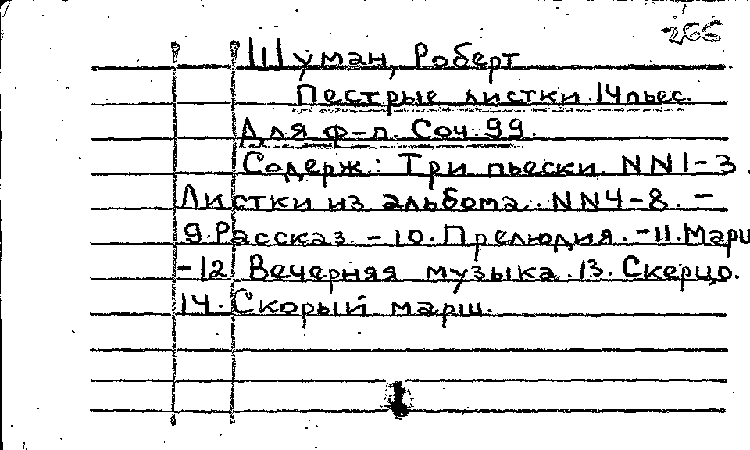 266
Шуман, Роберт
Пестрые листки. 14 пьес.
Для ф-п. Соч. 99.
Содерж.: Три пьески. NN1-3.
Листки из альбома. NN4-8. -
9. Рассказ. - 10. Прелюдия. - 11. Марш
- 12. Вечерняя музыка. 13. Скерцо.
14. Скорый марш.